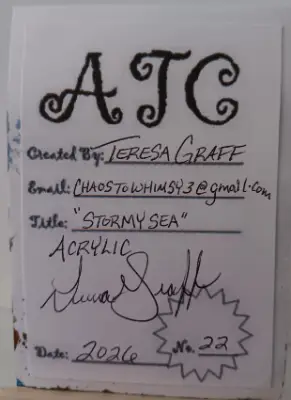 ATC
Created By: TERESA GRAFF
Email: CHAOSTOWHIMSY3@gmail.com
Title: "STORMY SEA"
ACRYLIC
Teresa Graff
Date: 2026 No. 22